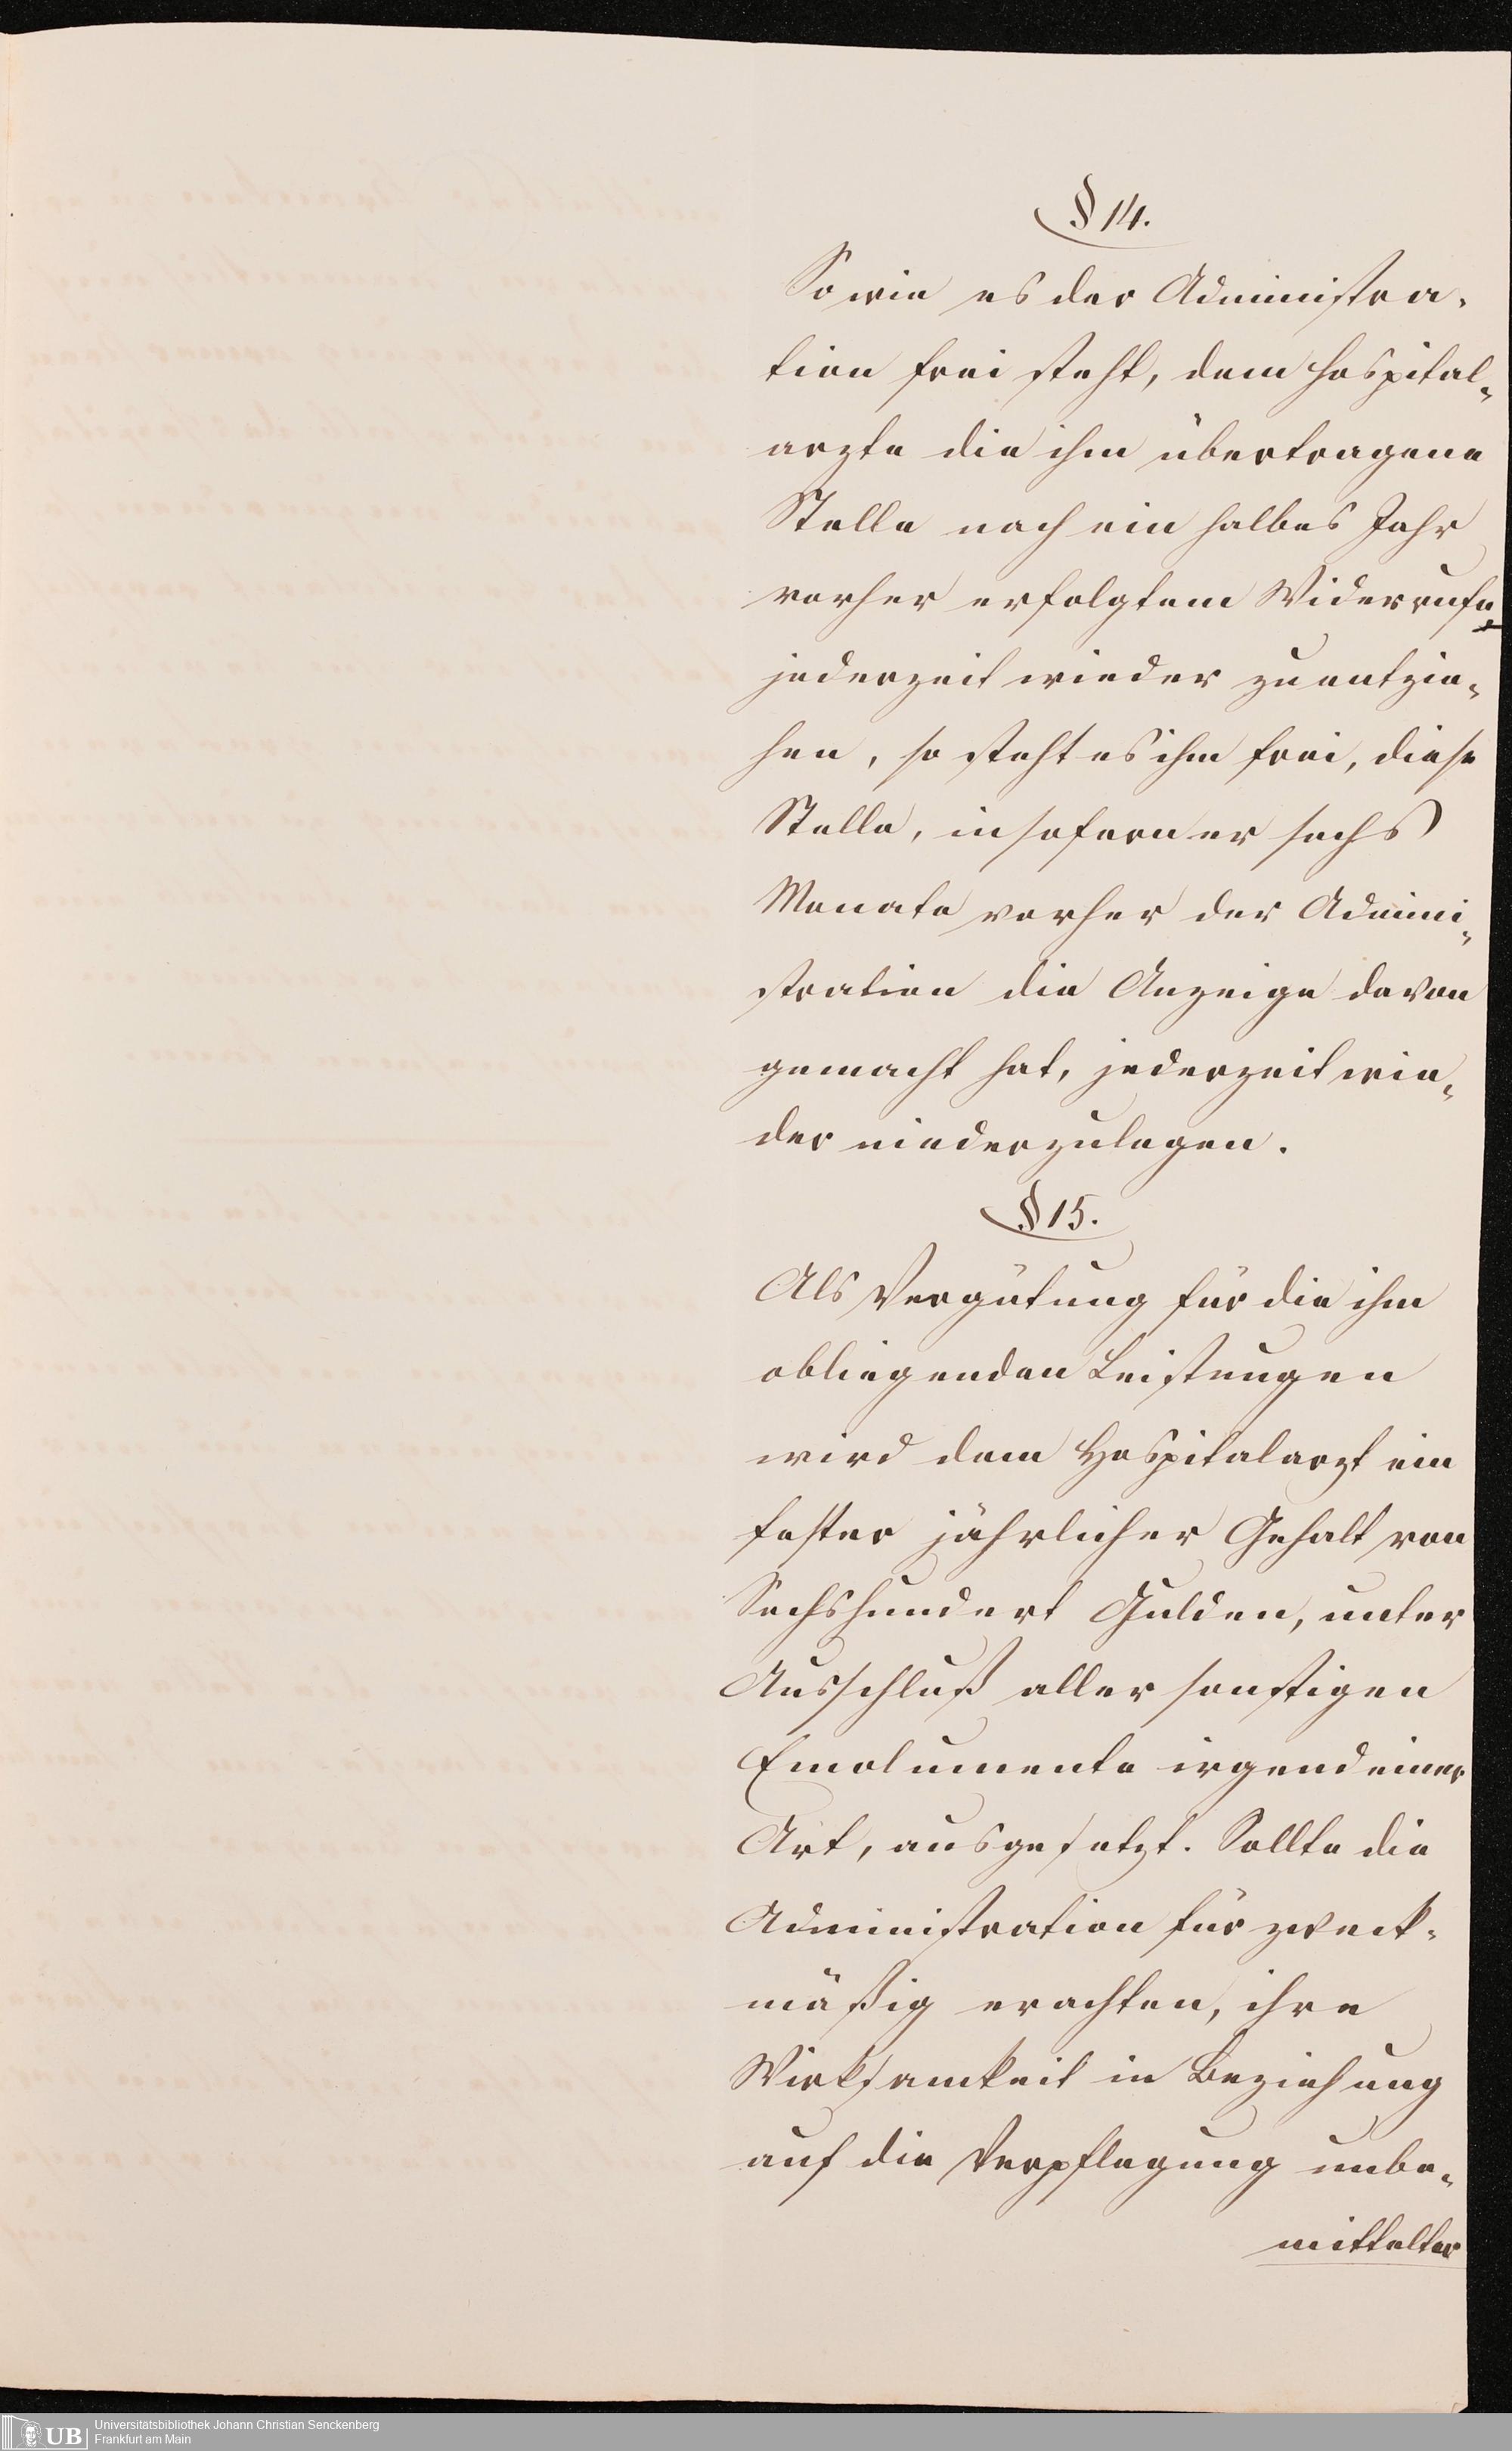 § 14.
So wie es der Administra-
tion frei steht, dem Hospital-
arzte die ihm übertragene
Stelle nach ein halbes Jahr
vorher erfolgtem Widerrufe,
jederzeit wieder zu entzie-
hen, so steht es ihm frei, diese
Stelle, insofern er sechs
Monate vorher der Admini-
stration die Anzeige davon
gemacht hat, jederzeit wie-
der niederzulegen.
§ 15.
Als Vergütung für die ihm
obliegenden Leistungen
wird dem Hospitalarzt ein
fester jährlicher Gehalt von
Sechshundert Gulden, unter
Ausschluß aller sonstigen
Emolumente irgend einer
Art, ausgesetzt. Sollte die
Administration für zweck-
mäßig erachten, ihre
Wirksamkeit in Beziehung
auf die Verpflegung unbe-
mittelter
UB
Universitätsbibliothek Johann Christian Senckenberg
Frankfurt am Main